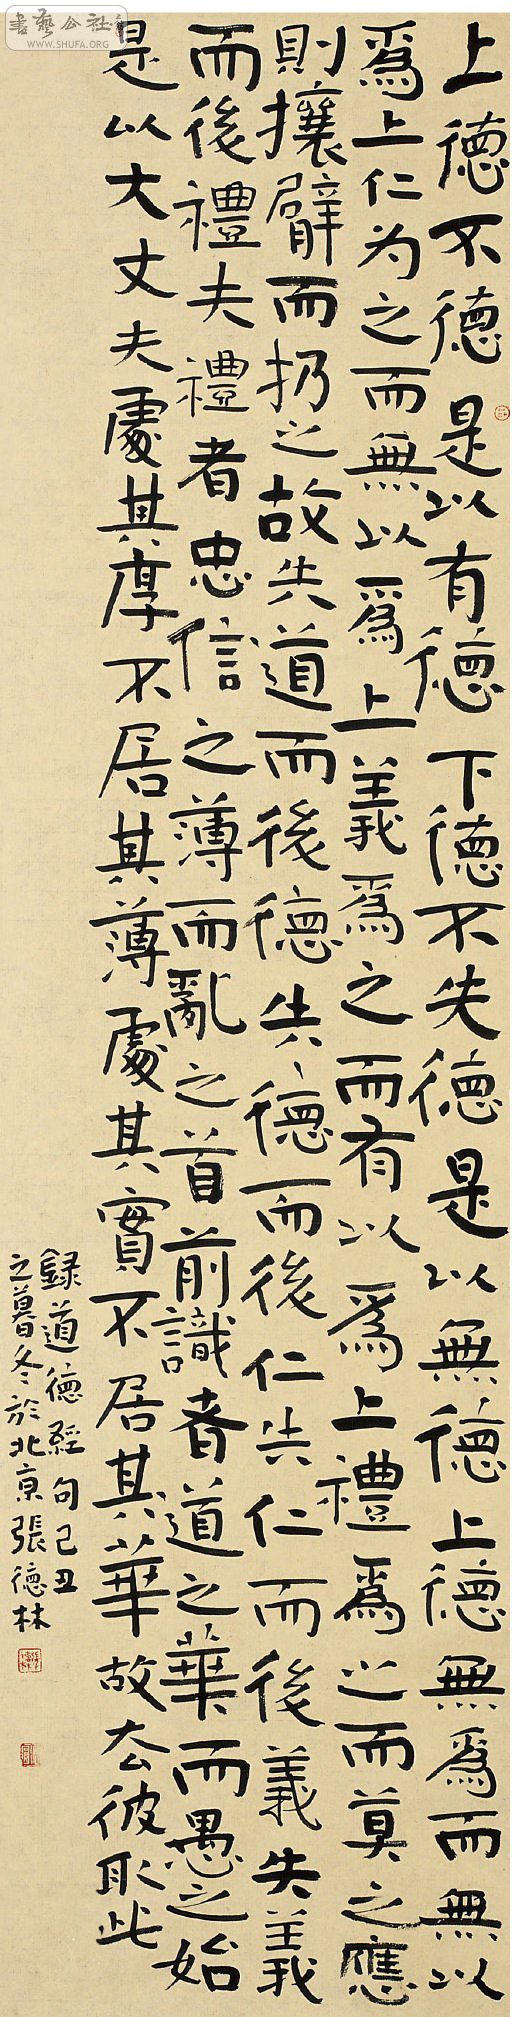 書藝公社
WWW.SHUFA.ORG
上德不德是以有德下德不失德是以無德上德無爲而無以
爲上仁为之而無以爲上義爲之而有以爲上禮爲之而莫之應
則攘臂而扔之故失道而後德失德而後仁失仁而後義失義
而後禮夫禮者忠信之薄而亂之首前識者道之華而愚之始
是以大丈夫處其厚不居其薄處其實不居其華故去彼取此
録道德經句己丑
之暮冬於北京張德林